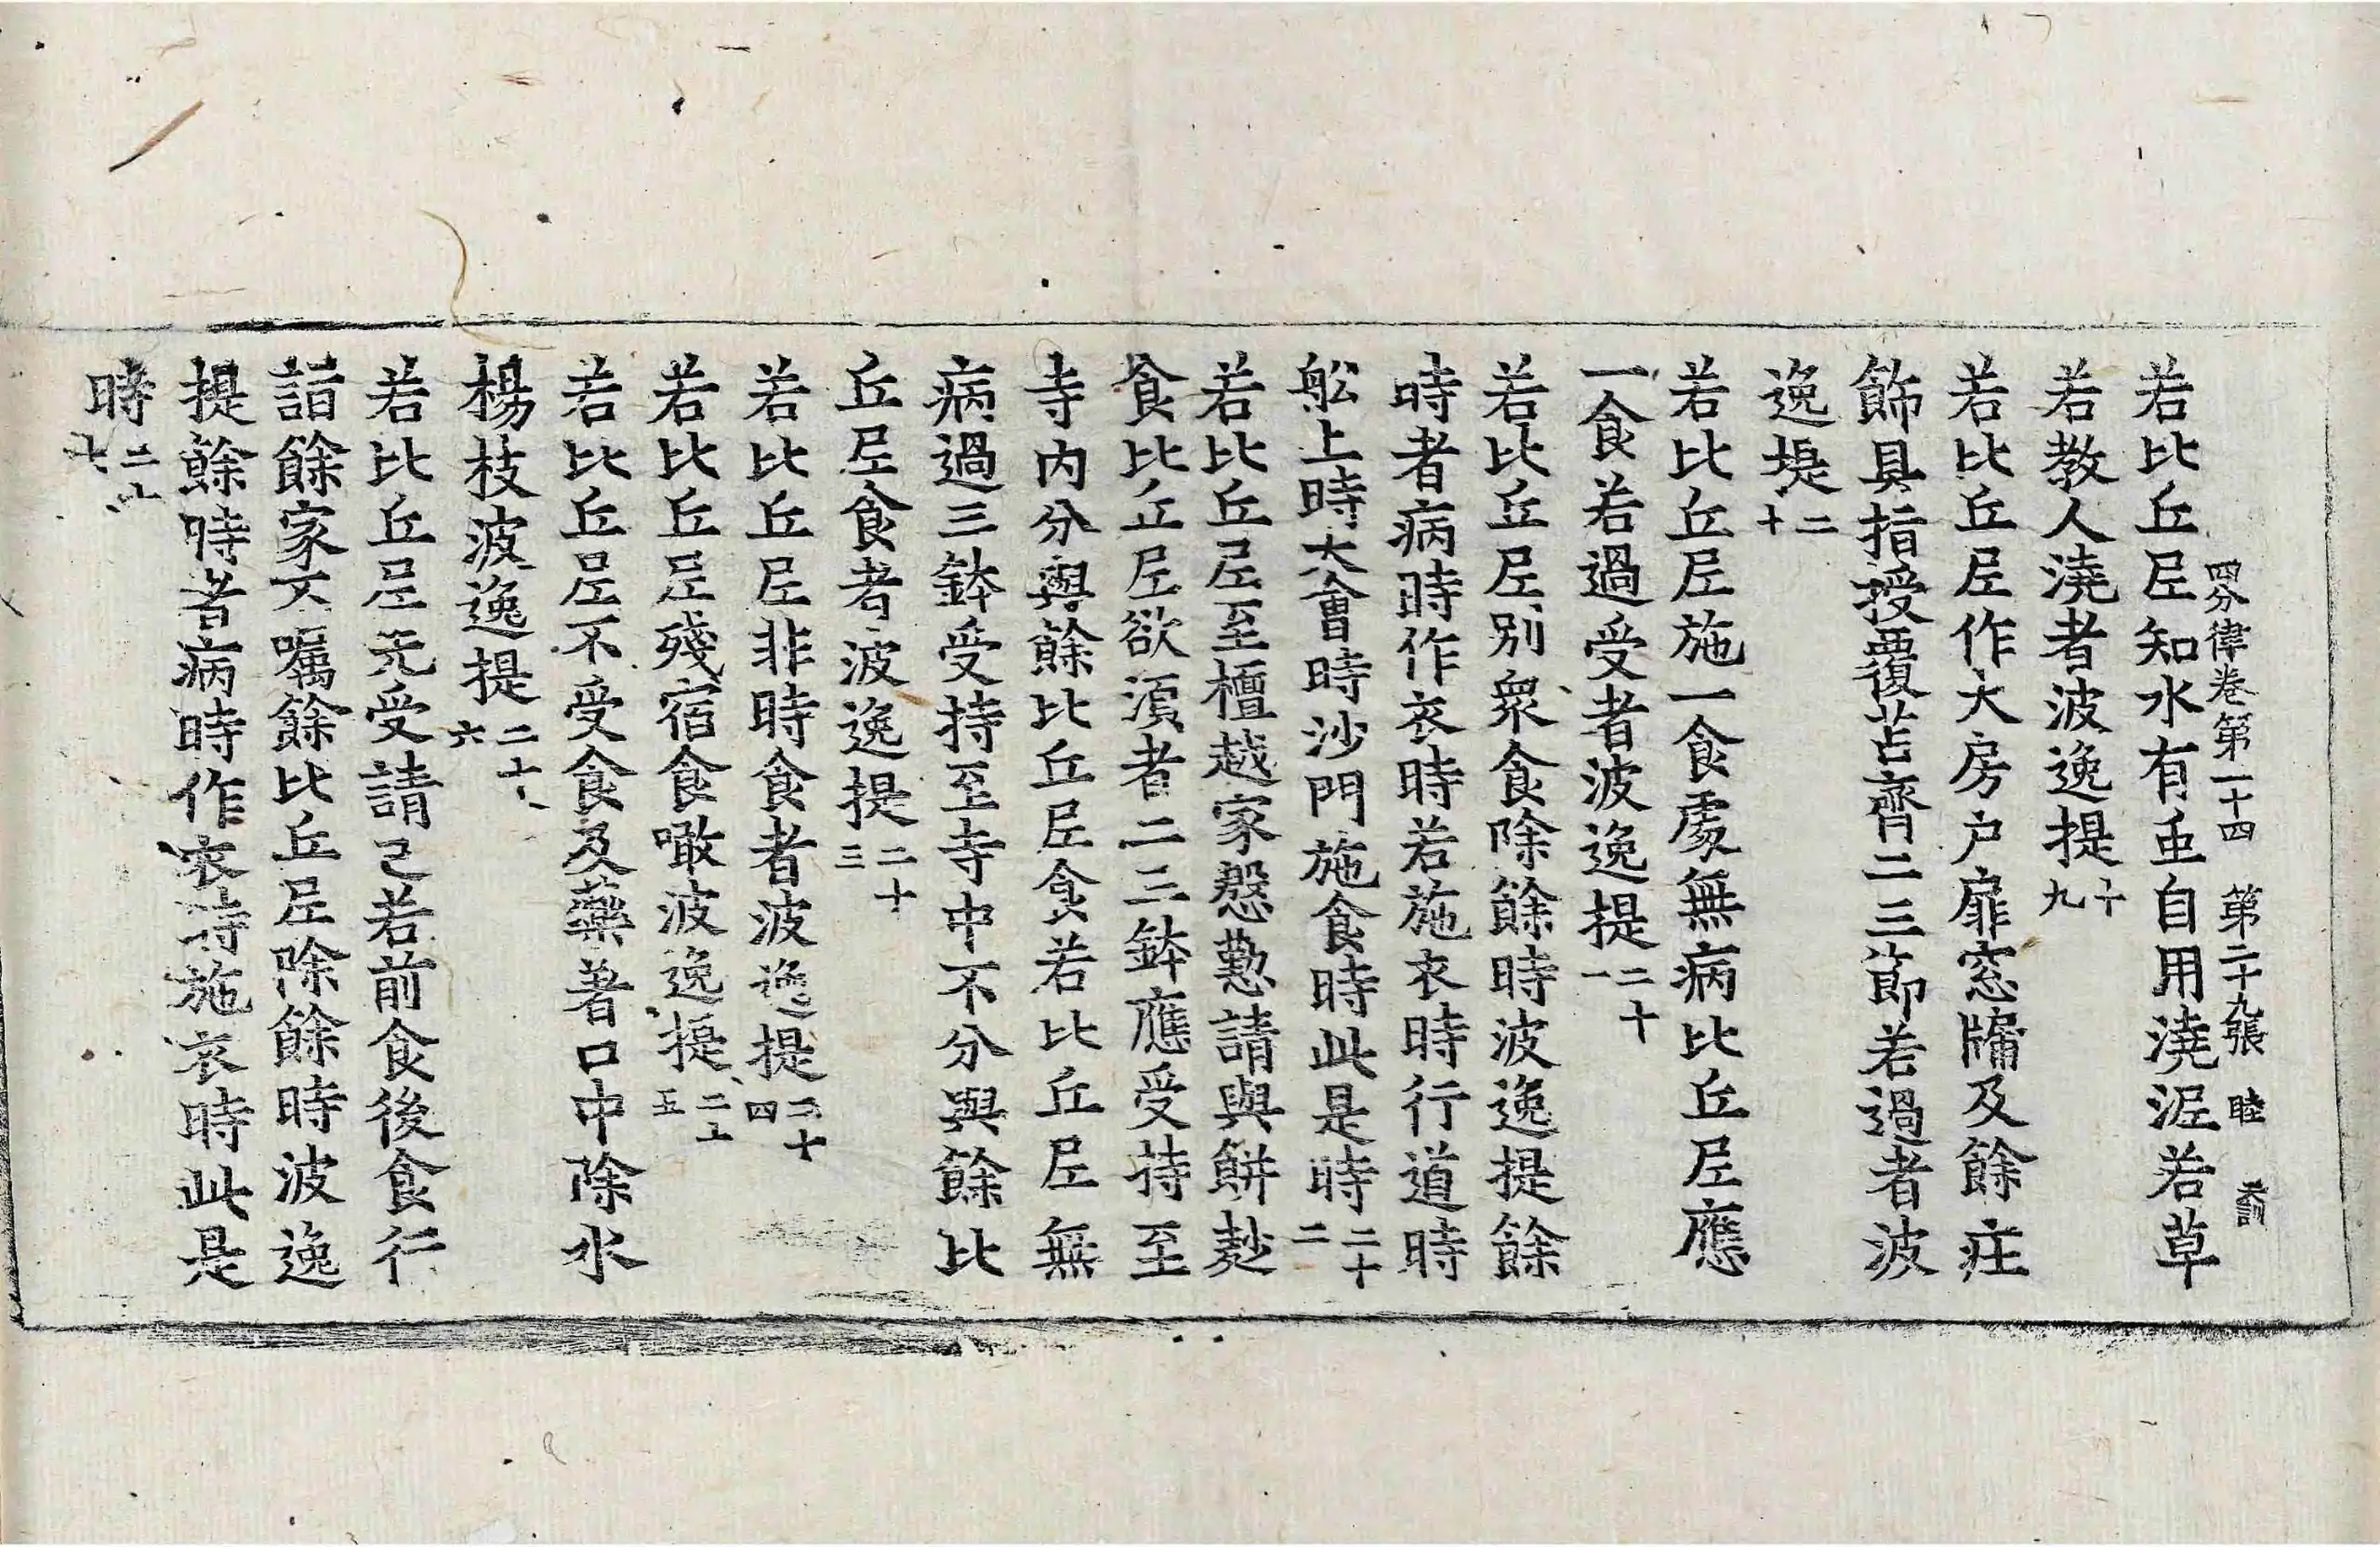 四分律卷第二十四 第二十九張 睦
若比丘尼知水有䖝自用澆泥若草
若教人澆者波逸提十九
若比丘尼作大房户扉窓牖及餘莊
飾具指授覆苫齊二三節若過者波
逸提二十
若比丘尼施一食處無病比丘尼應
一食若過受者波逸提二十一
若比丘尼別衆食除餘時波逸提餘
時者病時作衣時若施衣時行道時
舩上時大會時沙門施食時此是時二十二
若比丘尼至檀越家慇懃請與餅麨
食比丘尼欲湏者二三鉢應受持至
寺内分與餘比丘尼食若比丘尼無
病過三鉢受持至寺中不分與餘比
丘尼食者波逸提二十三
若比丘尼非時食者波逸提二十四
若比丘尼殘宿食噉波逸提二十五
若比丘尼不受食及藥著口中除水
楊枝波逸提二十六
若比丘尼先受請已若前食後食行
詣餘家不囑餘比丘尼除餘時波逸
提餘時者病時作衣時施衣時此是
時二十七